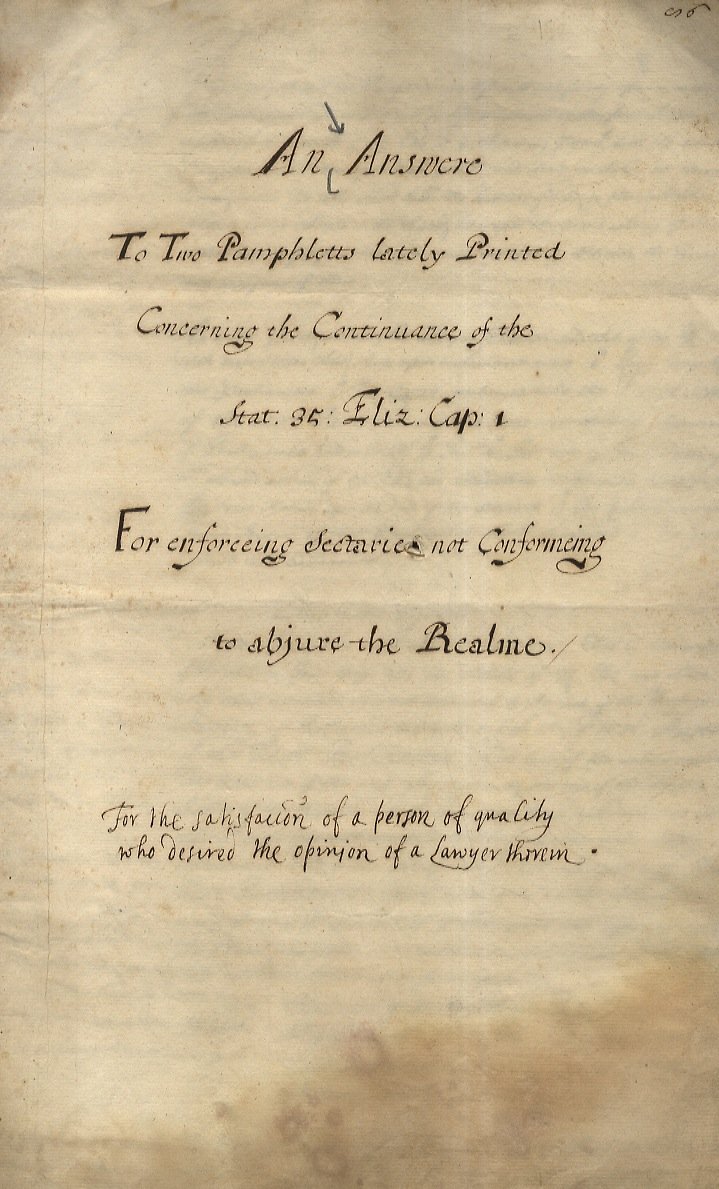 An Answere
To Two Pamphletts lately Printed
Concerning the Continuance of the
Stat. 35: Eliz: Cap: 1
For enforceing Sectaries not Conformeing
to abjure the Realme./
For the satisfaccõn of a person of quality
who desired the opinion of a Lawyer therein.